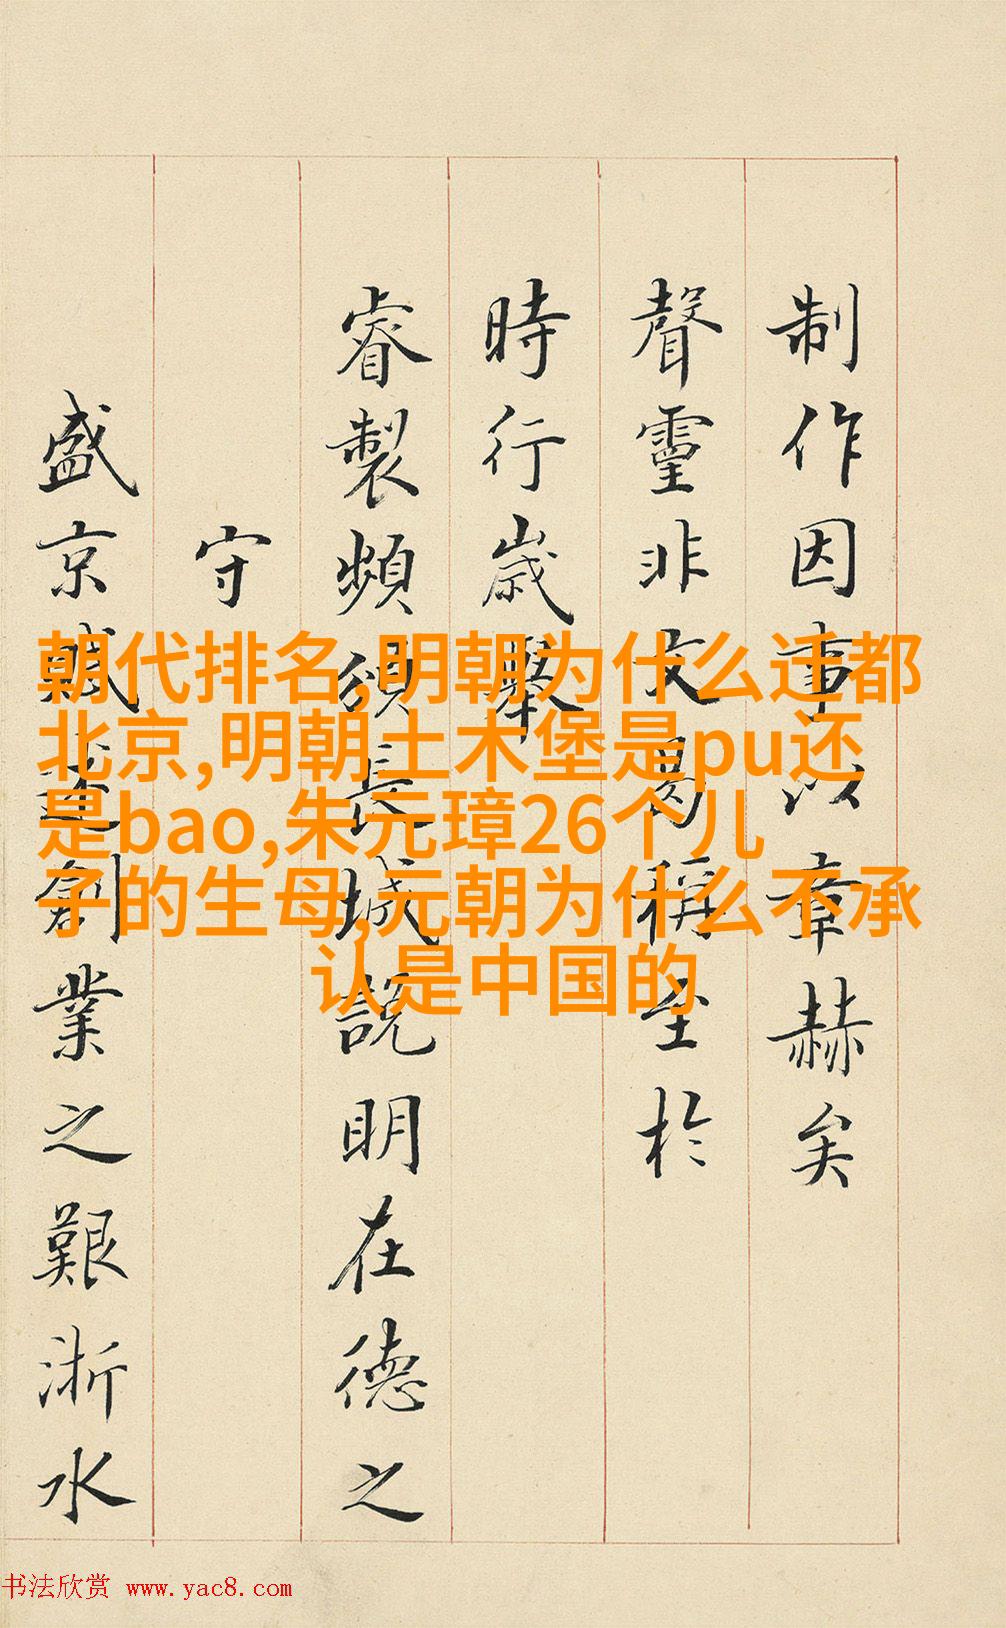 制作因事以章赫矣
聲靈非文曷稱至於
時行歲舉
睿製頻頒長城説明在德之
守
盛京賦述創業之艱浙水
朝代排名,明朝为什么迁都
北京,明朝土木堡是pu还
是bao,朱元璋26个儿
子的生母,元朝为什么不承
认是中国的
书法欣赏 www.yac8.com